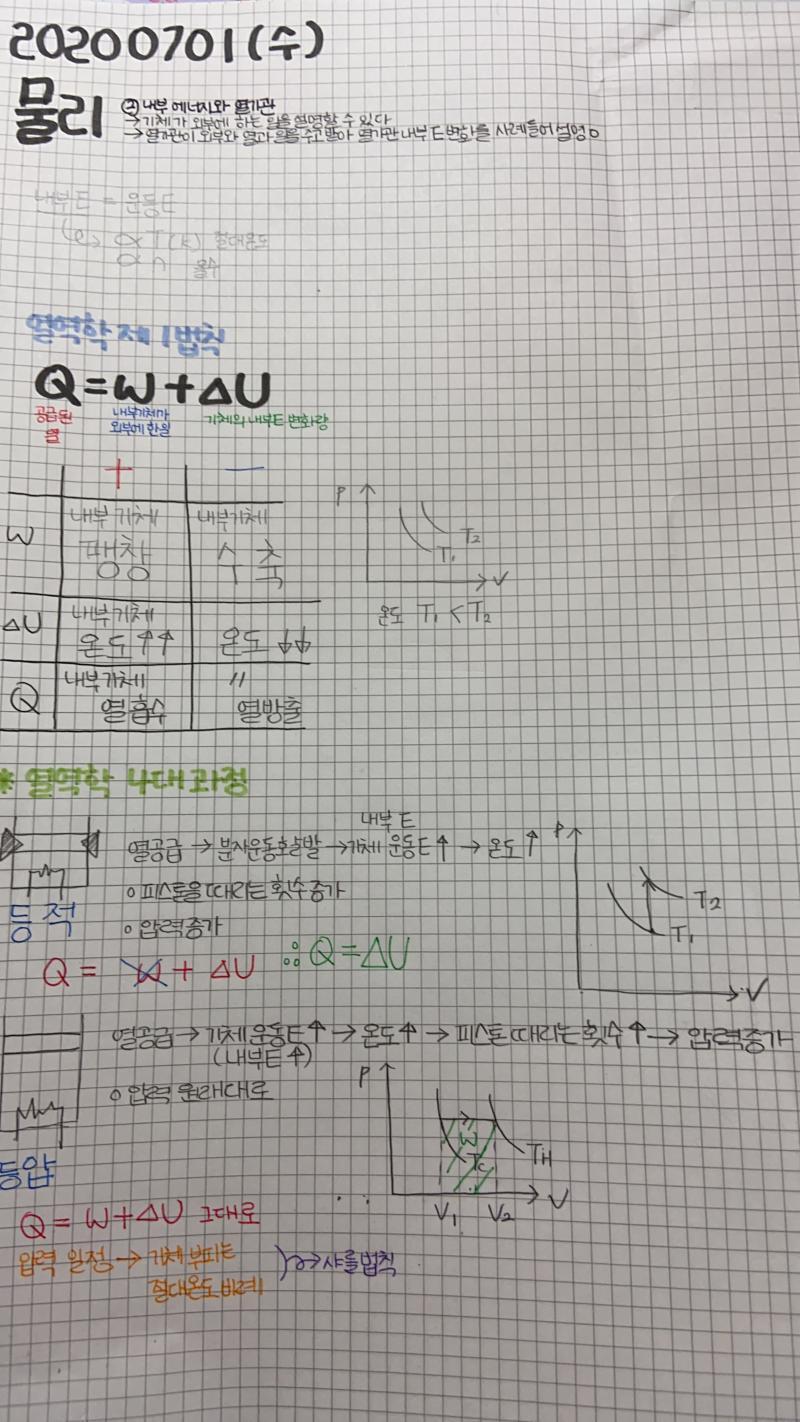 20200701(수)
물리
② 내부 에너지와 열기관
→ 기체가 외부에 하는 일을 설명할 수 있다
→ 열기관이 외부와 열과 일을 주고받아 열기관 내부E변화를 사례들어 설명○
내부E = 운동E
∝ T(K) 절대온도
∝ n 몰수
열역학 제1법칙
Q = W + ΔU
공급된 열
내부기체가 외부에 한 일
기체의 내부E변화량
+ −
W 내부기체 팽창 내부기체 수축
ΔU 내부기체 온도↑↑ 온도↓↓
Q 내부기체 열흡수 〃 열방출
P
T₂
T₁
V
온도 T₁ < T₂
* 열역학 4대과정
열공급 → 분자운동활발 → 기체 운동E↑ → 온도↑
내부E
○ 피스톤을 때리는 횟수증가
○ 압력증가
등적
Q = W + ΔU ∴ Q = ΔU
P
T₂
T₁
V
열공급 → 기체운동E↑ → 온도↑ → 피스톤 때리는 횟수↑ → 압력증가
(내부E↑)
○ 압력 원래대로
등압
P
W
TH
Tc
V₁ V₂ V
Q = W + ΔU 그대로
압력 일정 → 기체 부피는
절대온도 비례
샤를법칙